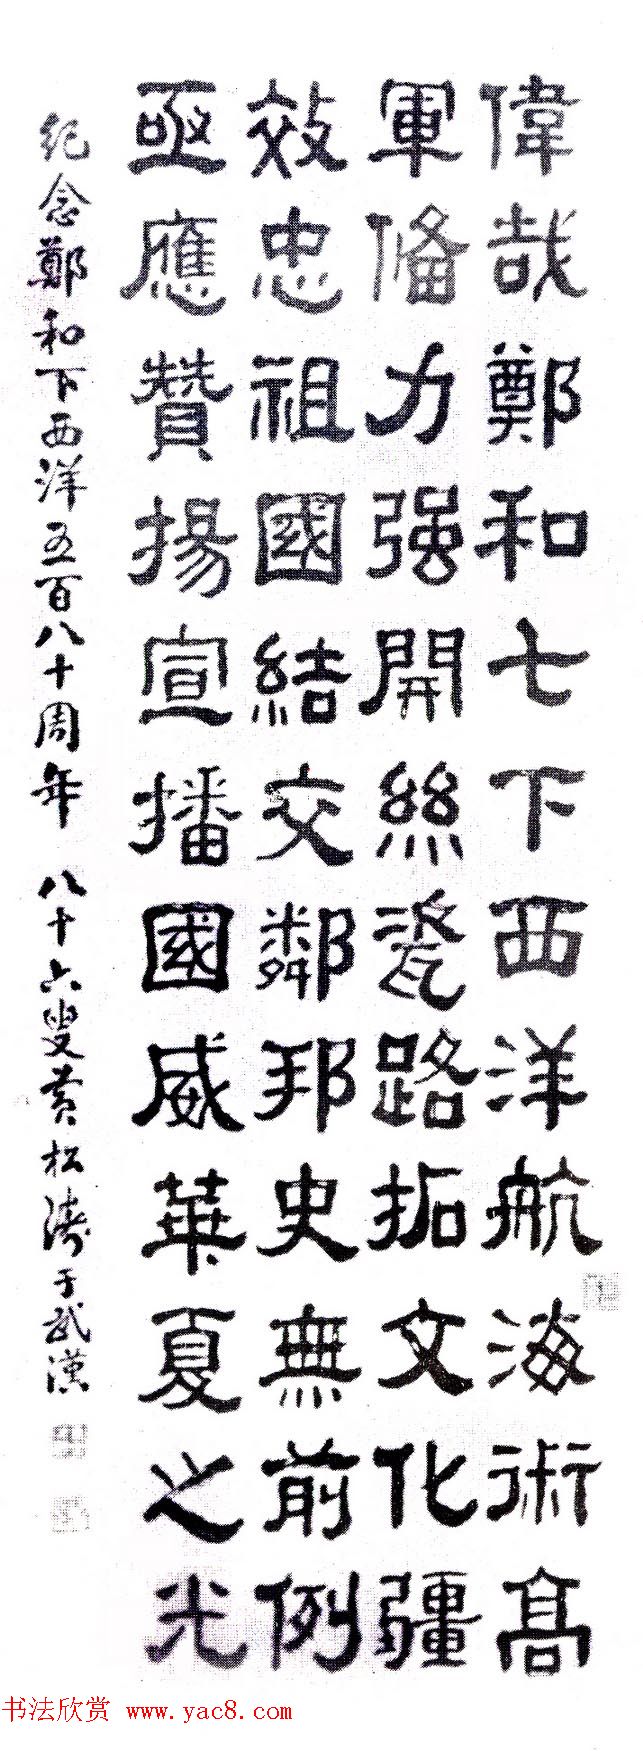 偉哉鄭和七下西洋航海術高
軍備力强開絲瓷路拓文化疆
效忠祖國結交鄰邦史無前例
亟應贊揚宣播國威華夏之光
纪念鄭和下西洋五百八十周年 八十六叟黄松涛于武漢
书法欣赏 www.yac8.com